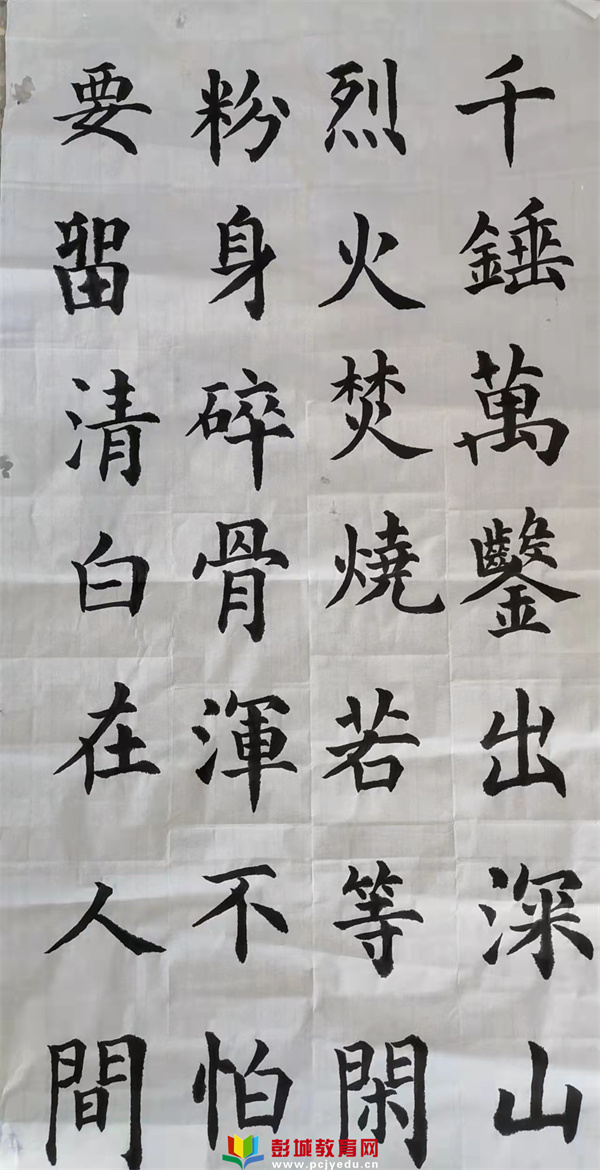 千錘萬鑿出深山
烈火焚燒若等閑
粉身碎骨渾不怕
要留清白在人間
彭城教育网
www.pcjyedu.cn